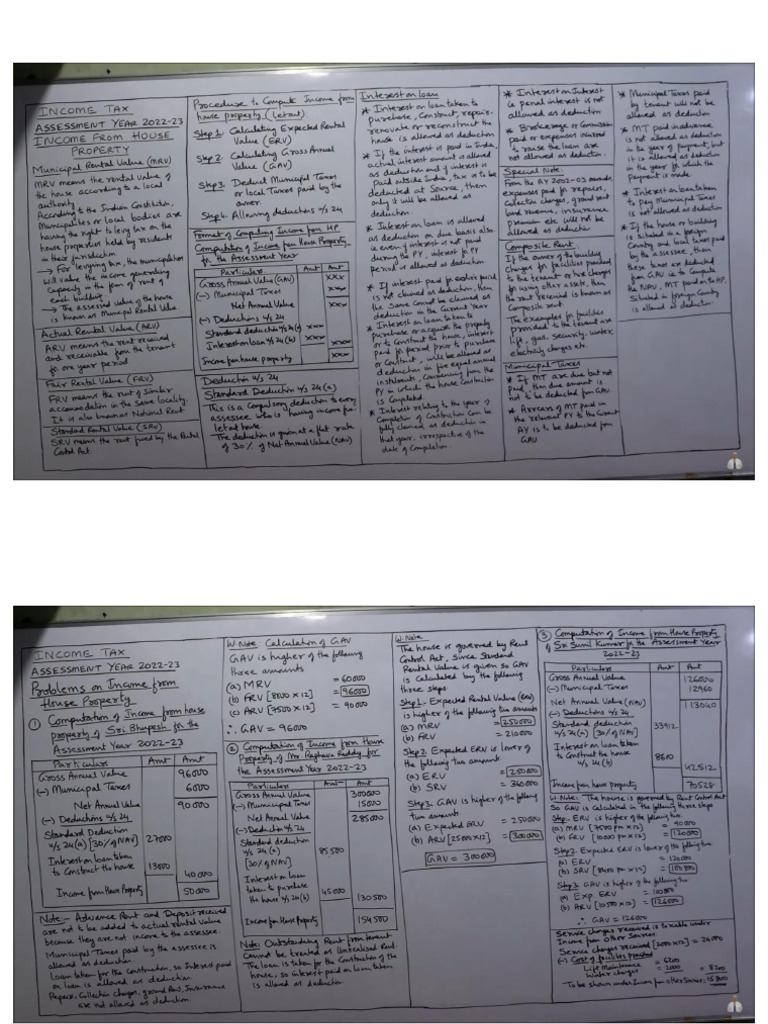 INCOME TAX
ASSESSMENT YEAR 2022-23
INCOME FROM HOUSE
PROPERTY
Municipal Rental Value (MRV)
MRV means the rental value of
the house according to a local
authority.
According to the Indian Constitution,
Municipalties or local bodies are
having the right to levy tax on the
house properties held by residents
in their jurisdiction.
→ For levying tax, the municipalities
will value the income generating
capacity in the form of rent of
each building
→ The assessed value of the house
is known as Municipal Rental Value.
Actual Rental Value (ARV)
ARV means the rent received
and receivable from the tenant
for one year period
Fair Rental Value (FRV)
FRV means the rent of Similar
accommodation in the Same locality.
It is also known as Notional Rent
Standard Rental Value (SRV)
SRV means the rent fixed by the Rental
Control Act.
Procedure to Compute Income from
house property (Letout)
Step 1. Calculating Expected Rental
Value (ERV)
Step 2. Calculating Gross Annual
Value (GAV)
Step 3. Deduct Municipal Taxes
or local Taxes paid by the
owner.
Step 4. Allowing deductions u/s 24
Format of Computing Income from HP
Computation of Income from House Property
for the Assessment Year
Particulars Amt Amt
Gross Annual Value (GAV) xxx
(-) Municipal Taxes xxx
Net Annual Value xxx
(-) Deductions u/s 24
Standard deduction u/s 24(a) xxx
Interest on loan u/s 24 (b) xxx xxx
Income from house property xxx
Deduction u/s 24
Standard Deduction u/s 24 (a)
This is a Compulsory deduction to every
assessee who is having income from
letout house.
The deduction is given at a flat rate
of 30% of Net Annual Value (NAV)
Interest on loan
* Interest on loan taken to
purchase, Construct, repair,
renovate or reconstruct the
house is allowed as deduction
* If the interest is paid in India,
actual interest amount is allowed
as deduction and if interest is
Paid outside India, tax is to be
deducted at Source, then
only it will be allowed as
deduction.
* Interest on loan is allowed
as deduction on due basis also.
ie even if interest is not paid
during the PY, interest for PY
period is allowed as deduction
* If interest paid for earlier period
is not claimed as deduction, then
the Same Cannot be claimed as
deduction in the Current Year
* Interest on loan taken to
purchase or acquire the property
or to Construct the house, interest
paid for period prior to purchase
or Construct, will be allowed as
deduction in five equal annual
instalments, Commencing from the
PY in which the house Construction
is Completed.
* Interest relating to the year of
Completion of Construction Can be
fully claimed as deduction in
that year, irrespective of the
date of Completion.
* Interest on Interest
ie penal interest is not
allowed as deduction
* Brokerage or Commission
paid or expenses incurred
to raise the loan are
not allowed as deduction.
Special Note:
From the AY 2002-03 onwards,
expenses paid for repairs,
Collection charges, ground rent
land revenue, insurance
premium etc will not be
allowed as deduction
Composite Rent:
If the owner of the building
Charges for facilities provided
to the tenant or hire charges
for using other assets, then
the rent received is known as
Composite rent.
The examples for facilities
provided to the tenant are
lift, gas, security, water,
electricity charges etc.
Municipal Taxes
* If MT are due but not
paid, then due amount is
not to be deducted from GAV
* Arrears of MT paid in
the relevant PY to the Current
AY is to be deducted from
GAV
* Municipal Taxes paid
by tenant will not be
allowed as deduction
* MT paid in advance
is not allowed as deduction
in the year of payment, but
it is allowed as deduction
in the year for which the
payment is made.
* Interest on loan taken
to pay Municipal Taxes
is not allowed as deduction
* If the house or building
is Situated in a foreign
Country and local taxes paid
by the assessee, then
these taxes are deducted
from GAV to Compute
the NAV, MT paid on the HP
Situated in foreign County
is allowed as deduction
INCOME TAX
ASSESSMENT YEAR 2022-23
Problems on Income from
House Property
① Computation of Income from house
property of Sri Bhupesh for the
Assessment Year 2022-23
Particulars Amt Amt
Gross Annual Value 96000
(-) Municipal Taxes 6000
Net Annual Value 90000
(-) Deductions u/s 24
Standard Deduction
u/s 24(a) [30% of NAV] 27000
Interest on loan taken
to Construct the house 13000
40000
Income from House Property 50000
Note:- Advance Rent and Deposit received
are not to be added to actual rental value
because they are not income to the assessee.
Municipal Taxes paid by the assessee is
allowed as deduction.
Loan taken for the Construction, so Interest paid
on loan is allowed as deduction.
Repairs, Collection Charges, ground Rent, Insurance
are not allowed as deduction.
W.Note: Calculation of GAV
GAV is higher of the following
three amounts
(a) MRV = 60000
(b) FRV [8000 x 12] = 96000
(c) ARV [7500 x 12] = 90000
∴ GAV = 96000
② Computation of Income from House
Property of Mr Raghava Reddy for
the Assessment Year 2022-23
Particulars Amt Amt
Gross Annual Value 300000
(-) Municipal Taxes 15000
Net Annual Value 285000
(-) Deduction u/s 24
Standard deduction
u/s 24 (a) 85500
[30% of NAV]
Interest on loan
taken to purchase
the house u/s 24(b) 45000
130500
Income from House Property 154500
Note: Outstanding Rent from tenant
Cannot be treated as Unrealised Rent.
The loan is taken for the Construction of the
house, so interest paid on loan taken
is allowed as deduction
W.Note
The house is governed by Rent
Control Act, Since Standard
Rental Value is given so GAV
is Calculated by the following
three steps
Step 1- Expected Rental Value (ERV)
is higher of the following two amounts
(a) MRV = 250000
(b) FRV = 210000
Step 2. Expected ERV is lower of
the following two amount
(a) ERV = 250000
(b) SRV = 360000
Step 3. GAV is higher of the following
two amounts
(a) Expected ERV = 250000
(b) ARV [25000 x 12] = 300000
GAV = 300000
③ Computation of Income from House Property
of Sri Sunil Kumar for the Assessment Year
2022-23
Particulars Amt Amt
Gross Annual Value 126000
(-) Municipal Taxes 12960
Net Annual Value (NAV) 113040
(-) Deductions u/s 24
Standard deduction
u/s 24(a) [30% of NAV] 33912
Interest on loan taken
to Construct the house 8600
u/s 24 (b)
42512
Income from house property 70528
W.Note: The house is governed by Rent Control Act
So GAV is calculated in the following three steps
Step 1. ERV is higher of the following two:
(a) MRV [7500 pm x 12] = 90000
(b) FRV [10000 pm x 12] = 120000
Step 2. Expected ERV is lower of the following two
(a) ERV = 120000
Step 3. GAV is higher of the following two
(a) Exp ERV = 100800
(b) ARV [10500 x 12] = 126000
∴ GAV = 126000
Service charges received is taxable under
Income from Other Sources.
Service charges received [2000 x 12] = 24000
(-) Cost of facilities provided
Lift Maintenance = 6200
Water charges = 2000 = 8200
To be shown under Income from other Sources: 15800